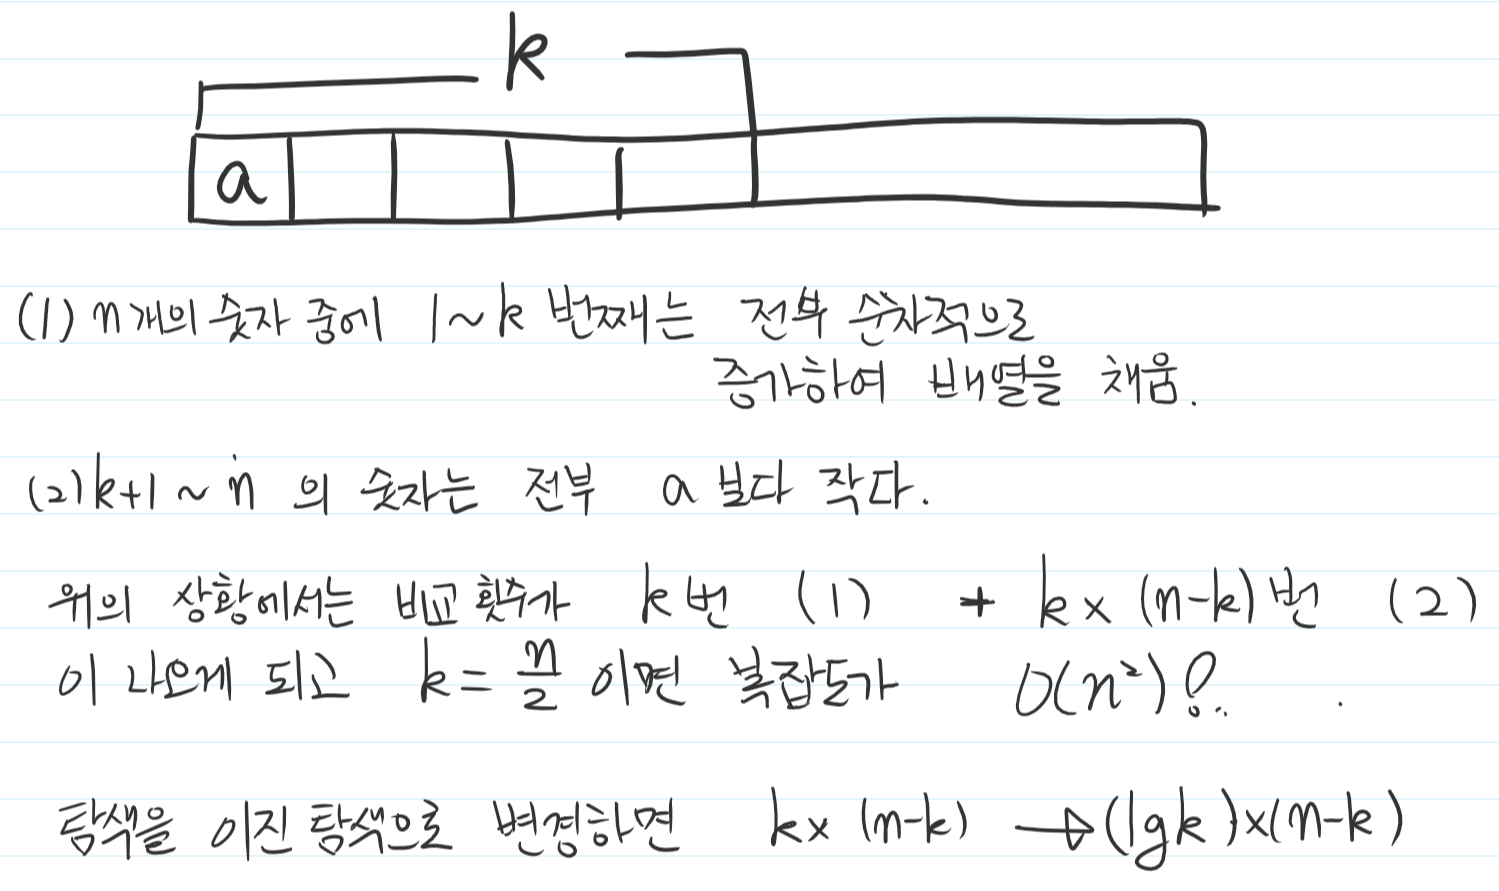 k
a
(1) n개의 숫자 중에 1~k 번째는 전부 순차적으로
증가하여 배열을 채움.
(2) k+1 ~ n 의 숫자는 전부 a 보다 작다.
위의 상황에서는 비교 횟수가 k번 (1) + k × (n-k)번 (2)
이 나오게 되고 k = n/2 이면 복잡도가 O(n²)!..
탐색을 이진 탐색으로 변경하면 k× (n-k) → (lgk)×(n-k)